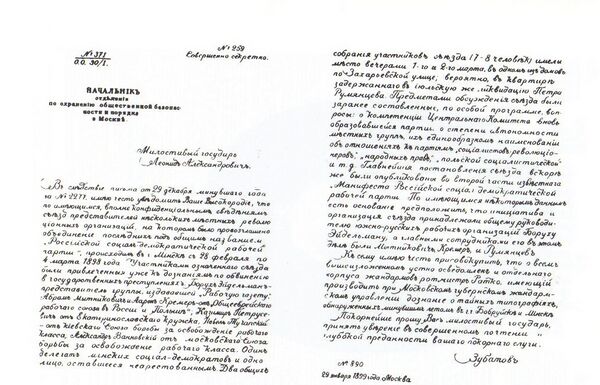 № 371
О.О. 30/I.
№ 259
Совершенно секретно.
НАЧАЛЬНИКЪ
отдѣленія
по охраненію общественной безопас-
ности и порядка
в Москвѣ
Милостивый государь
Леонидъ Александровичъ.
Въ слѣдствіе письма от 29 декабря минувшаго года
за № 2277, имѣю честь увѣдомить Ваше Высокородіе, что
по имѣющимся, вполнѣ конфиденціальнымъ свѣдѣніямъ
съѣзд представителей нѣсколькихъ мѣстныхъ револю-
ціонныхъ организацій, на которомъ было провозглашено
объединеніе послѣднихъ под общимъ названіемъ
„Россійской социалъ-демократической рабочей
партіи“, происходилъ в г. Минскѣ с 28 февраля по
4 марта 1898 года. Участниками означеннаго съѣзда
были привлеченные уже къ дознаніямъ по обвиненію
в государственныхъ преступленіяхъ: Борухъ Эйдельманъ-
представитель группы, издававшей „Рабочую газету“;
Абрамъ Мутниковичъ и Ааронъ Кремеръ-от „Общееврейскаго
рабочаго союза въ Россіи и Польшѣ“, Казимиръ Петрусе-
вичъ от Екатеринославскаго кружка, Павелъ Тучапскій
- отъ кіевскаго Союза борьбы за освобожденіе рабочаго
класса, Александръ Ванновскій от московскаго Союза
борьбы за освобожденіе рабочаго класса. Одинъ
делегатъ минских социал-демократов и одно
лицо, оставшіеся неарестованными. Два общихъ
собранія участниковъ съѣзда (7-8 человѣкъ) имѣли
мѣсто вечерами 1-го и 2-го марта, въ одномъ из домовъ
по Захарьевской улицѣ; вероятно, въ квартирѣ
задержаннаго въ іюльскую же ликвидацію Петра
Румянцева. Предметами обсужденія съѣзда были
заранее составленные, по особой программѣ, воп-
росы: о компетенціи Центральнаго Комитета вновь
образовавшейся партіи, о степени автономности
мѣстныхъ группъ, ихъ единообразномъ наименованіи
объ отношеніяхъ къ партіямъ „соціалистовъ революціо-
неровъ“, „народныхъ правъ“, „польской социалистической“
и т.д. Главнѣйшія постановленія съѣзда вскорѣ
же были опубликованы во второй части извѣстнаго
„Манифеста Россійской соціал-демократической
рабочей партіи. По имѣющимся нѣкоторымъ даннымъ
есть основаніе предположить, что иниціатива и
организація съѣзда принадлежала общему руководи-
телю южно-русскихъ рабочихъ организацій Боруху
Эйдельману, а главными сотрудниками его въ этомъ
дѣлѣ были Мутниковичъ, Кремеръ и Румянцевъ.
Къ сему имѣю честь присовокупить, что о всемъ
вышеизложенномъ устно освѣдомленъ и отдѣльнаго
корпуса жандармовъ ротмистръ Ратко, имѣющій
производить при Московскомъ губернскомъ жандарм-
скомъ управленіи дознаніе о тайныхъ типографіяхъ,
обнаруженныхъ минувшимъ лѣтомъ въ г.г. Бобруйскѣ и Минскѣ
Покорнѣйше прошу Васъ, милостивый государь,
принять увѣреніе въ совершенномъ почтеніи и
глубокой преданности вашего покорнаго слуги.
Зубатовъ
№ 890
29 января 1899 года Москва